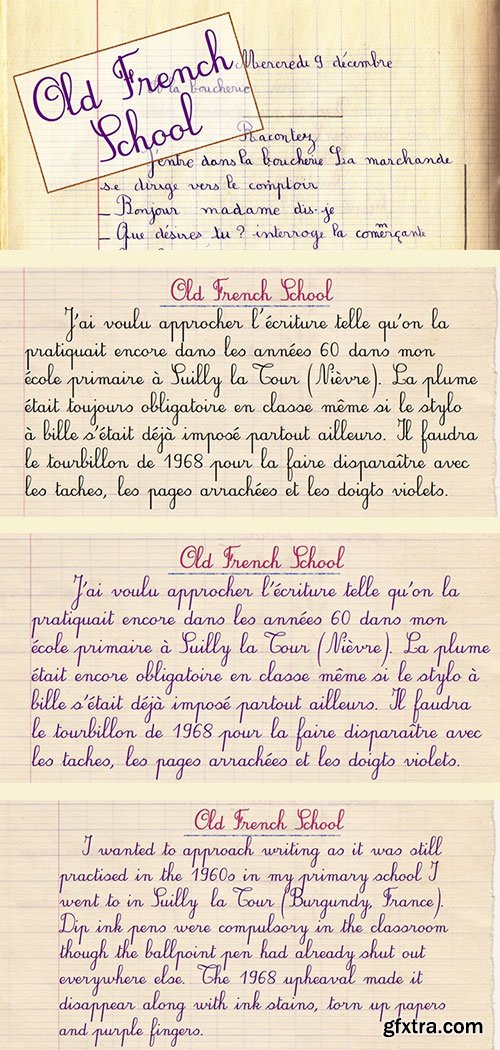 Old French
School
Mercredi 9 décembre
la boucherie
Racontez
J'entre dans la boucherie La marchande
se dirige vers le comptoir
_ Bonjour madame dis-je
_ Que désires tu ? interroge la commerçante
Old French School
J'ai voulu approcher l'écriture telle qu'on la
pratiquait encore dans les années 60 dans mon
école primaire à Suilly la Tour (Nièvre). La plume
était toujours obligatoire en classe même si le stylo
à bille s'était déjà imposé partout ailleurs. Il faudra
le tourbillon de 1968 pour la faire disparaître avec
les taches, les pages arrachées et les doigts violets.
Old French School
J'ai voulu approcher l'écriture telle qu'on la
pratiquait encore dans les années 60 dans mon
école primaire à Suilly la Tour (Nièvre). La plume
était encore obligatoire en classe même si le stylo à
bille s'était déjà imposé partout ailleurs. Il faudra
le tourbillon de 1968 pour la faire disparaître avec
les taches, les pages arrachées et les doigts violets.
Old French School
I wanted to approach writing as it was still
practised in the 1960s in my primary school I
went to in Suilly la Tour (Burgundy, France).
Dip ink pens were compulsory in the classroom
though the ballpoint pen had already shut out
everywhere else. The 1968 upheaval made it
disappear along with ink stains, torn up papers
and purple fingers.
gfxtra.com